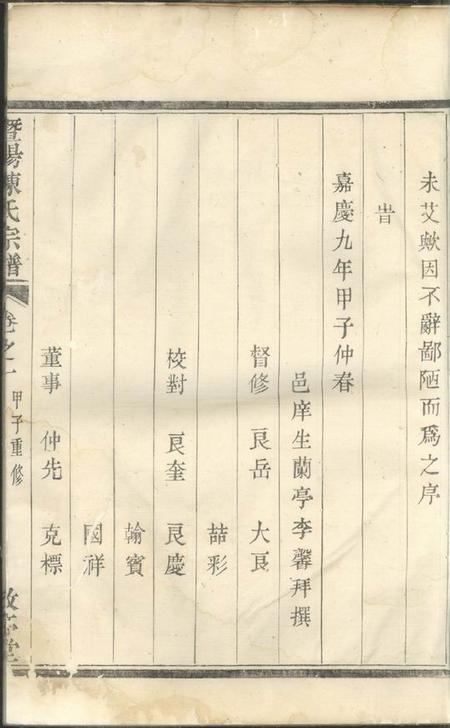 未艾歟因不辭鄙陋而爲之序
旹
嘉慶九年甲子仲春
邑庠生蘭亭李馨拜撰
督修 良岳 大良
喆彩
校對 良奎 良慶
翰賓
國祥
董事 仲先 克標
暨陽陳氏宗譜 卷之一 甲子重修